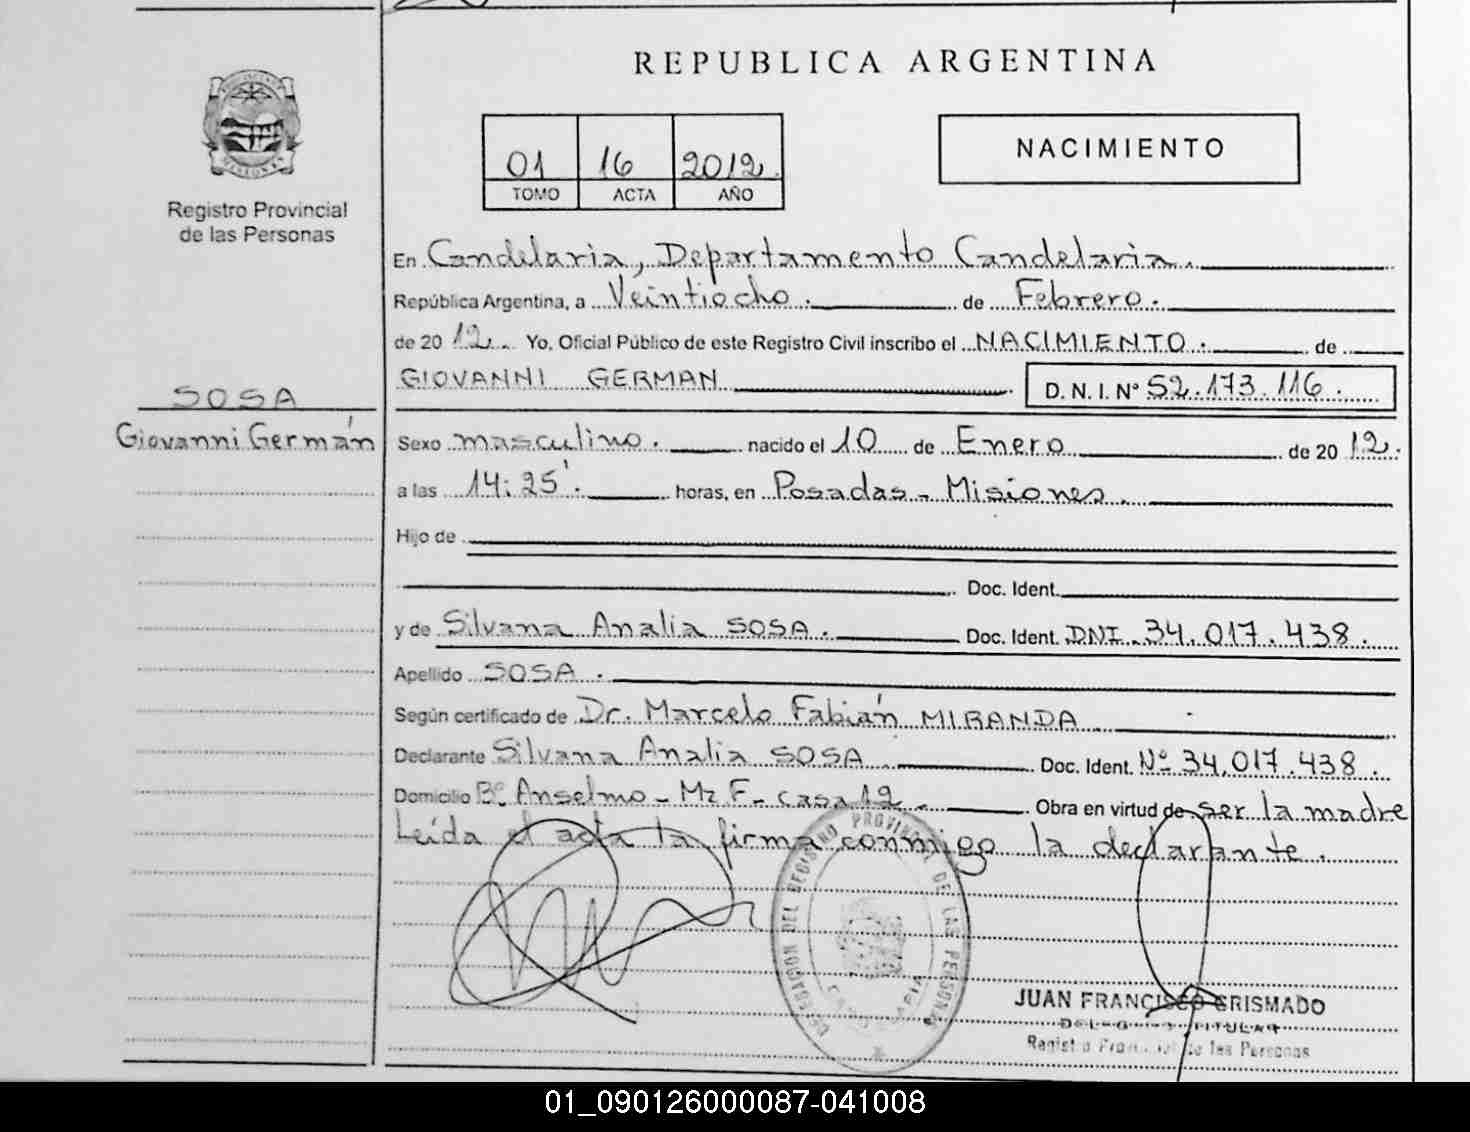 REPUBLICA ARGENTINA
01 16 2012
TOMO ACTA AÑO
NACIMIENTO
MISIONES
Registro Provincial
de las Personas
En Candelaria, Departamento Candelaria.
República Argentina, a Veintiocho. de Febrero.
de 2012. Yo, Oficial Público de este Registro Civil inscribo el NACIMIENTO. de
GIOVANNI GERMAN D. N. I. Nº 52.173.116.
SOSA
Giovanni Germán
Sexo masculino. nacido el 10 de Enero de 2012.
a las 14:25'. horas, en Posadas - Misiones.
Hijo de
Doc. Ident.
y de Silvana Analia SOSA. Doc. Ident. DNI. 34.017.438.
Apellido SOSA.
Según certificado de Dr. Marcelo Fabián MIRANDA
Declarante Silvana Analia SOSA. Doc. Ident. Nº 34.017.438.
Domicilio Bº Anselmo - Mz F - casa 12. Obra en virtud de ser la madre
Leída el acta la firma conmigo la declarante.
DELEGACION DEL REGISTRO PROVINCIAL DE LAS PERSONAS
CANDELARIA
JUAN FRANCISCO CRISMADO
DELEGADO TITULAR
Registro Provincial de las Personas
01_090126000087-041008